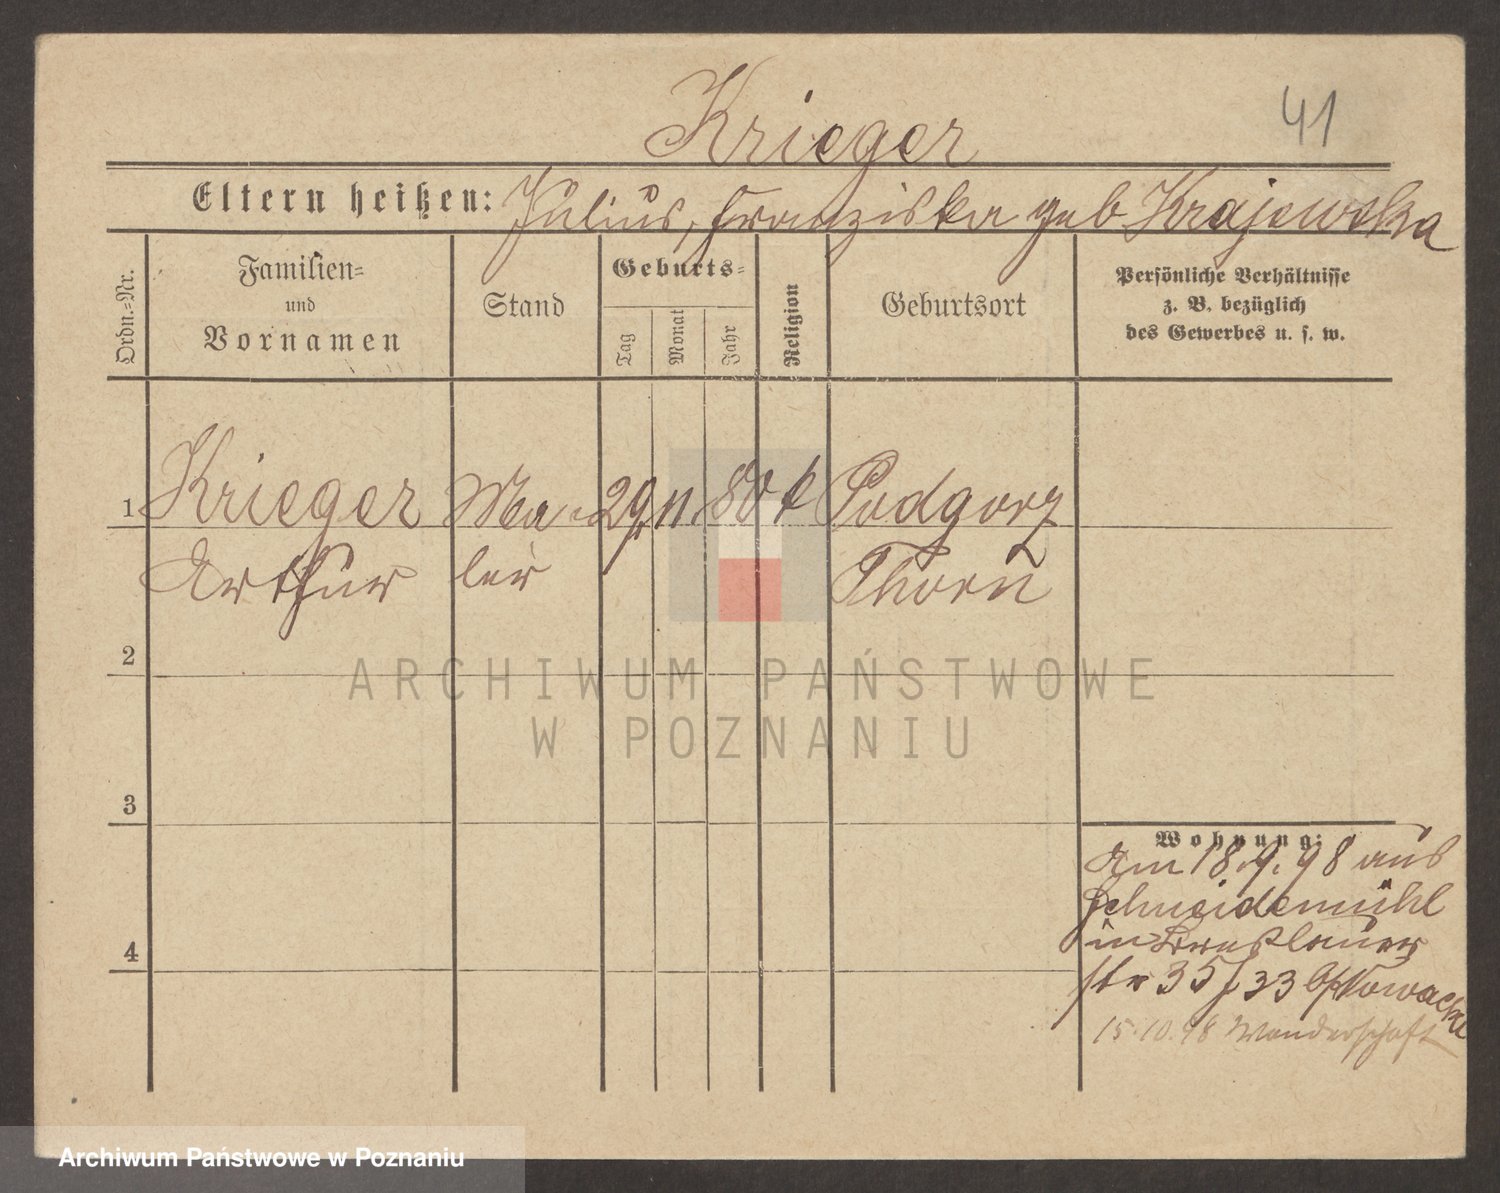 41
Krieger
Eltern heißen: Julius, Franziska geb Krajewska
Ordn.-Nr.
Familien-
und
Vornamen
Stand
Geburts-
Tag
Monat
Jahr
Religion
Geburtsort
Persönliche Verhältnisse
z. B. bezüglich
des Gewerbes u. s. w.
1 Krieger Ma- 29. 11. 80 k Podgorz
Arthur ler Thorn
2
3
4
Wohnung:
Am 18.9.98 aus
Schneidemühl
in Breslauer
str 35 / 33 b/ Nowacka
15.10.98 Wanderschaft
ARCHIWUM PAŃSTWOWE
W POZNANIU
Archiwum Państwowe w Poznaniu